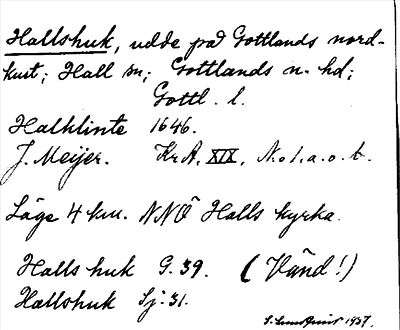 Hallshuk, udde på Gottlands nord-
kust; Hall sn; Gottlands n. hd;
Gottl. l.
Halklinte 1646.
J. Meijer. KrA, XIX, N.o.l.a.o.t.
Läge 4 km. NNÖ Halls kyrka.
Halls huk G. 39. (Vänd!)
Hallshuk Sj: 31.
1937.